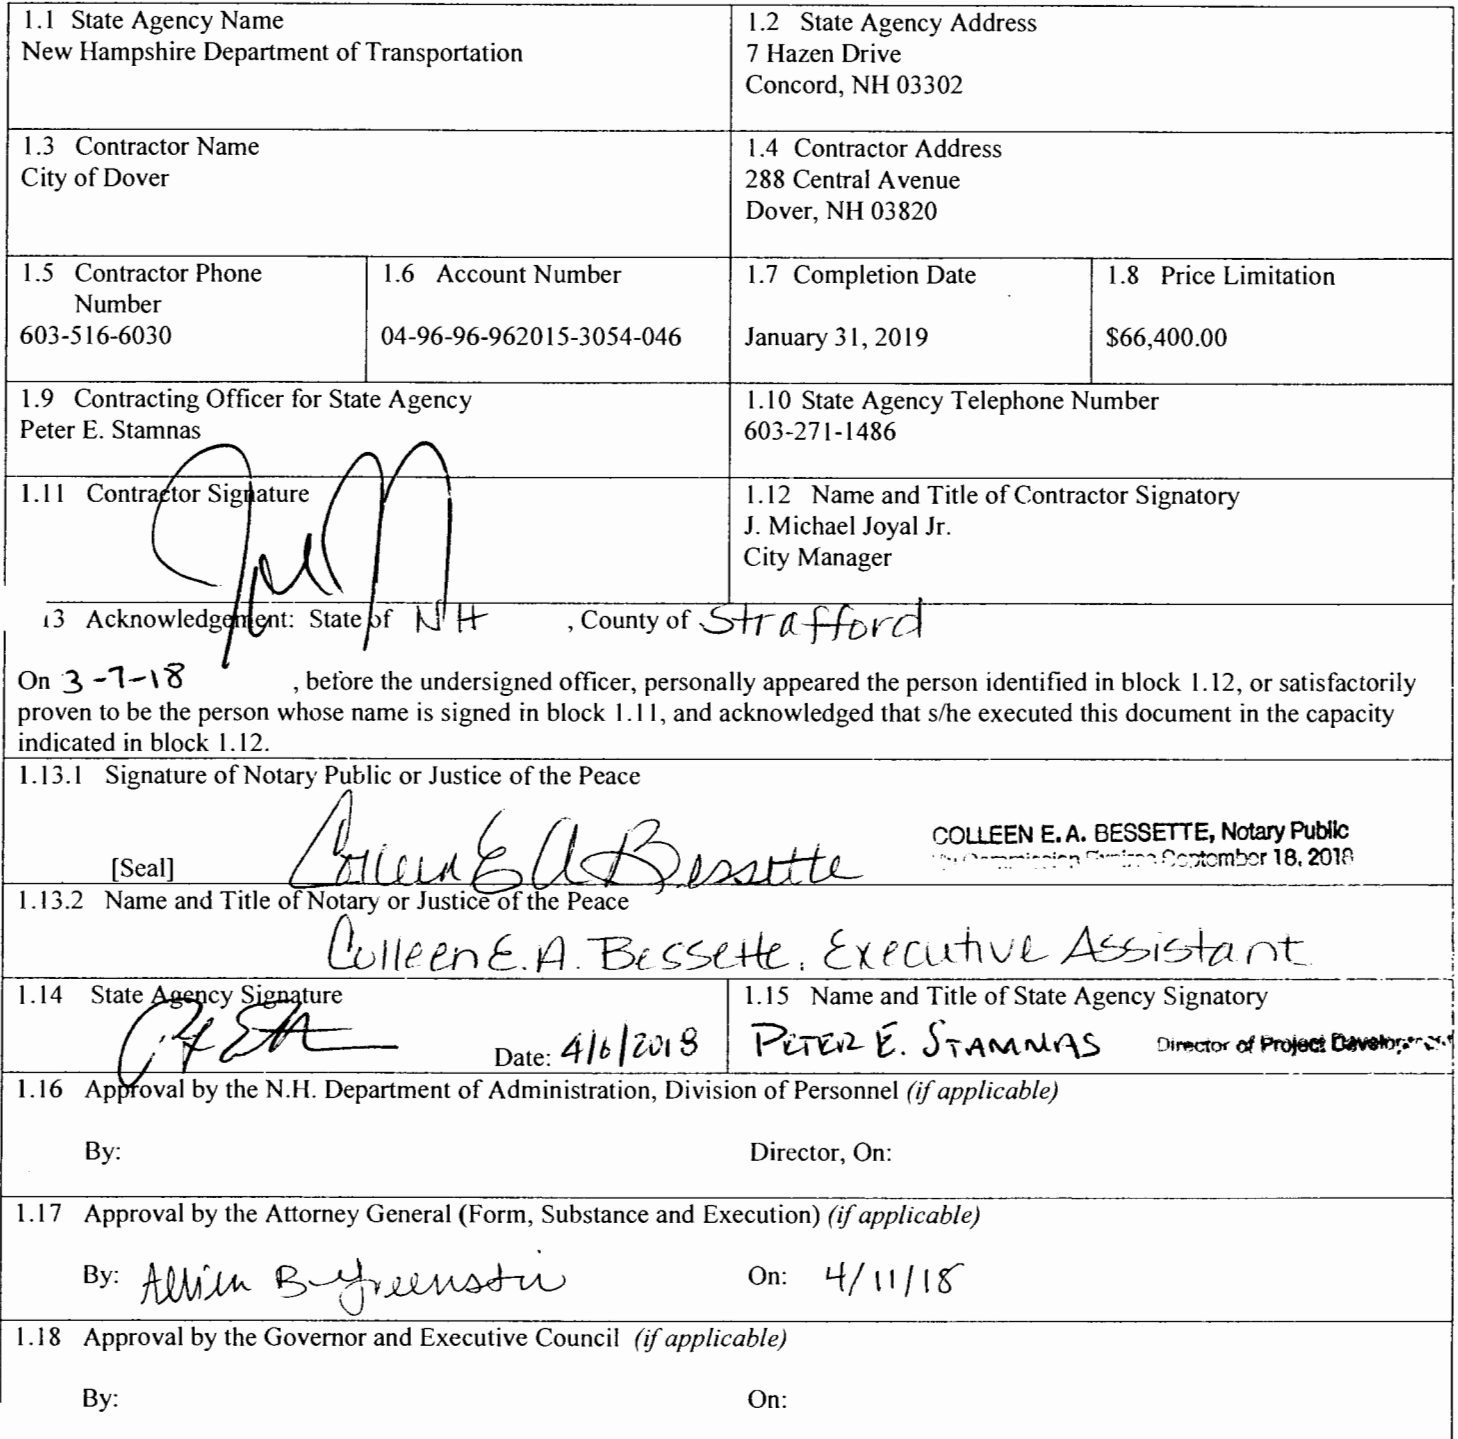 1.1 State Agency Name
New Hampshire Department of Transportation
1.2 State Agency Address
7 Hazen Drive
Concord, NH 03302
1.3 Contractor Name
City of Dover
1.4 Contractor Address
288 Central Avenue
Dover, NH 03820
1.5 Contractor Phone
Number
603-516-6030
1.6 Account Number
04-96-96-962015-3054-046
1.7 Completion Date
January 31, 2019
1.8 Price Limitation
$66,400.00
1.9 Contracting Officer for State Agency
Peter E. Stamnas
1.10 State Agency Telephone Number
603-271-1486
1.11 Contractor Signature
1.12 Name and Title of Contractor Signatory
J. Michael Joyal Jr.
City Manager
13 Acknowledgement: State of NH , County of Strafford
On 3-7-18 , before the undersigned officer, personally appeared the person identified in block 1.12, or satisfactorily
proven to be the person whose name is signed in block 1.11, and acknowledged that s/he executed this document in the capacity
indicated in block 1.12.
1.13.1 Signature of Notary Public or Justice of the Peace
COLLEEN E. A. BESSETTE, Notary Public
Commission Expires September 18, 2018
[Seal] Colleen E A Bessette
1.13.2 Name and Title of Notary or Justice of the Peace
Colleen E. A. Bessette, Executive Assistant
1.14 State Agency Signature
Date: 4/6/2018
1.15 Name and Title of State Agency Signatory
PETER E. STAMNAS Director of Project Development
1.16 Approval by the N.H. Department of Administration, Division of Personnel (if applicable)
By: Director, On:
1.17 Approval by the Attorney General (Form, Substance and Execution) (if applicable)
By: B Greenstein On: 4/11/18
1.18 Approval by the Governor and Executive Council (if applicable)
By: On: